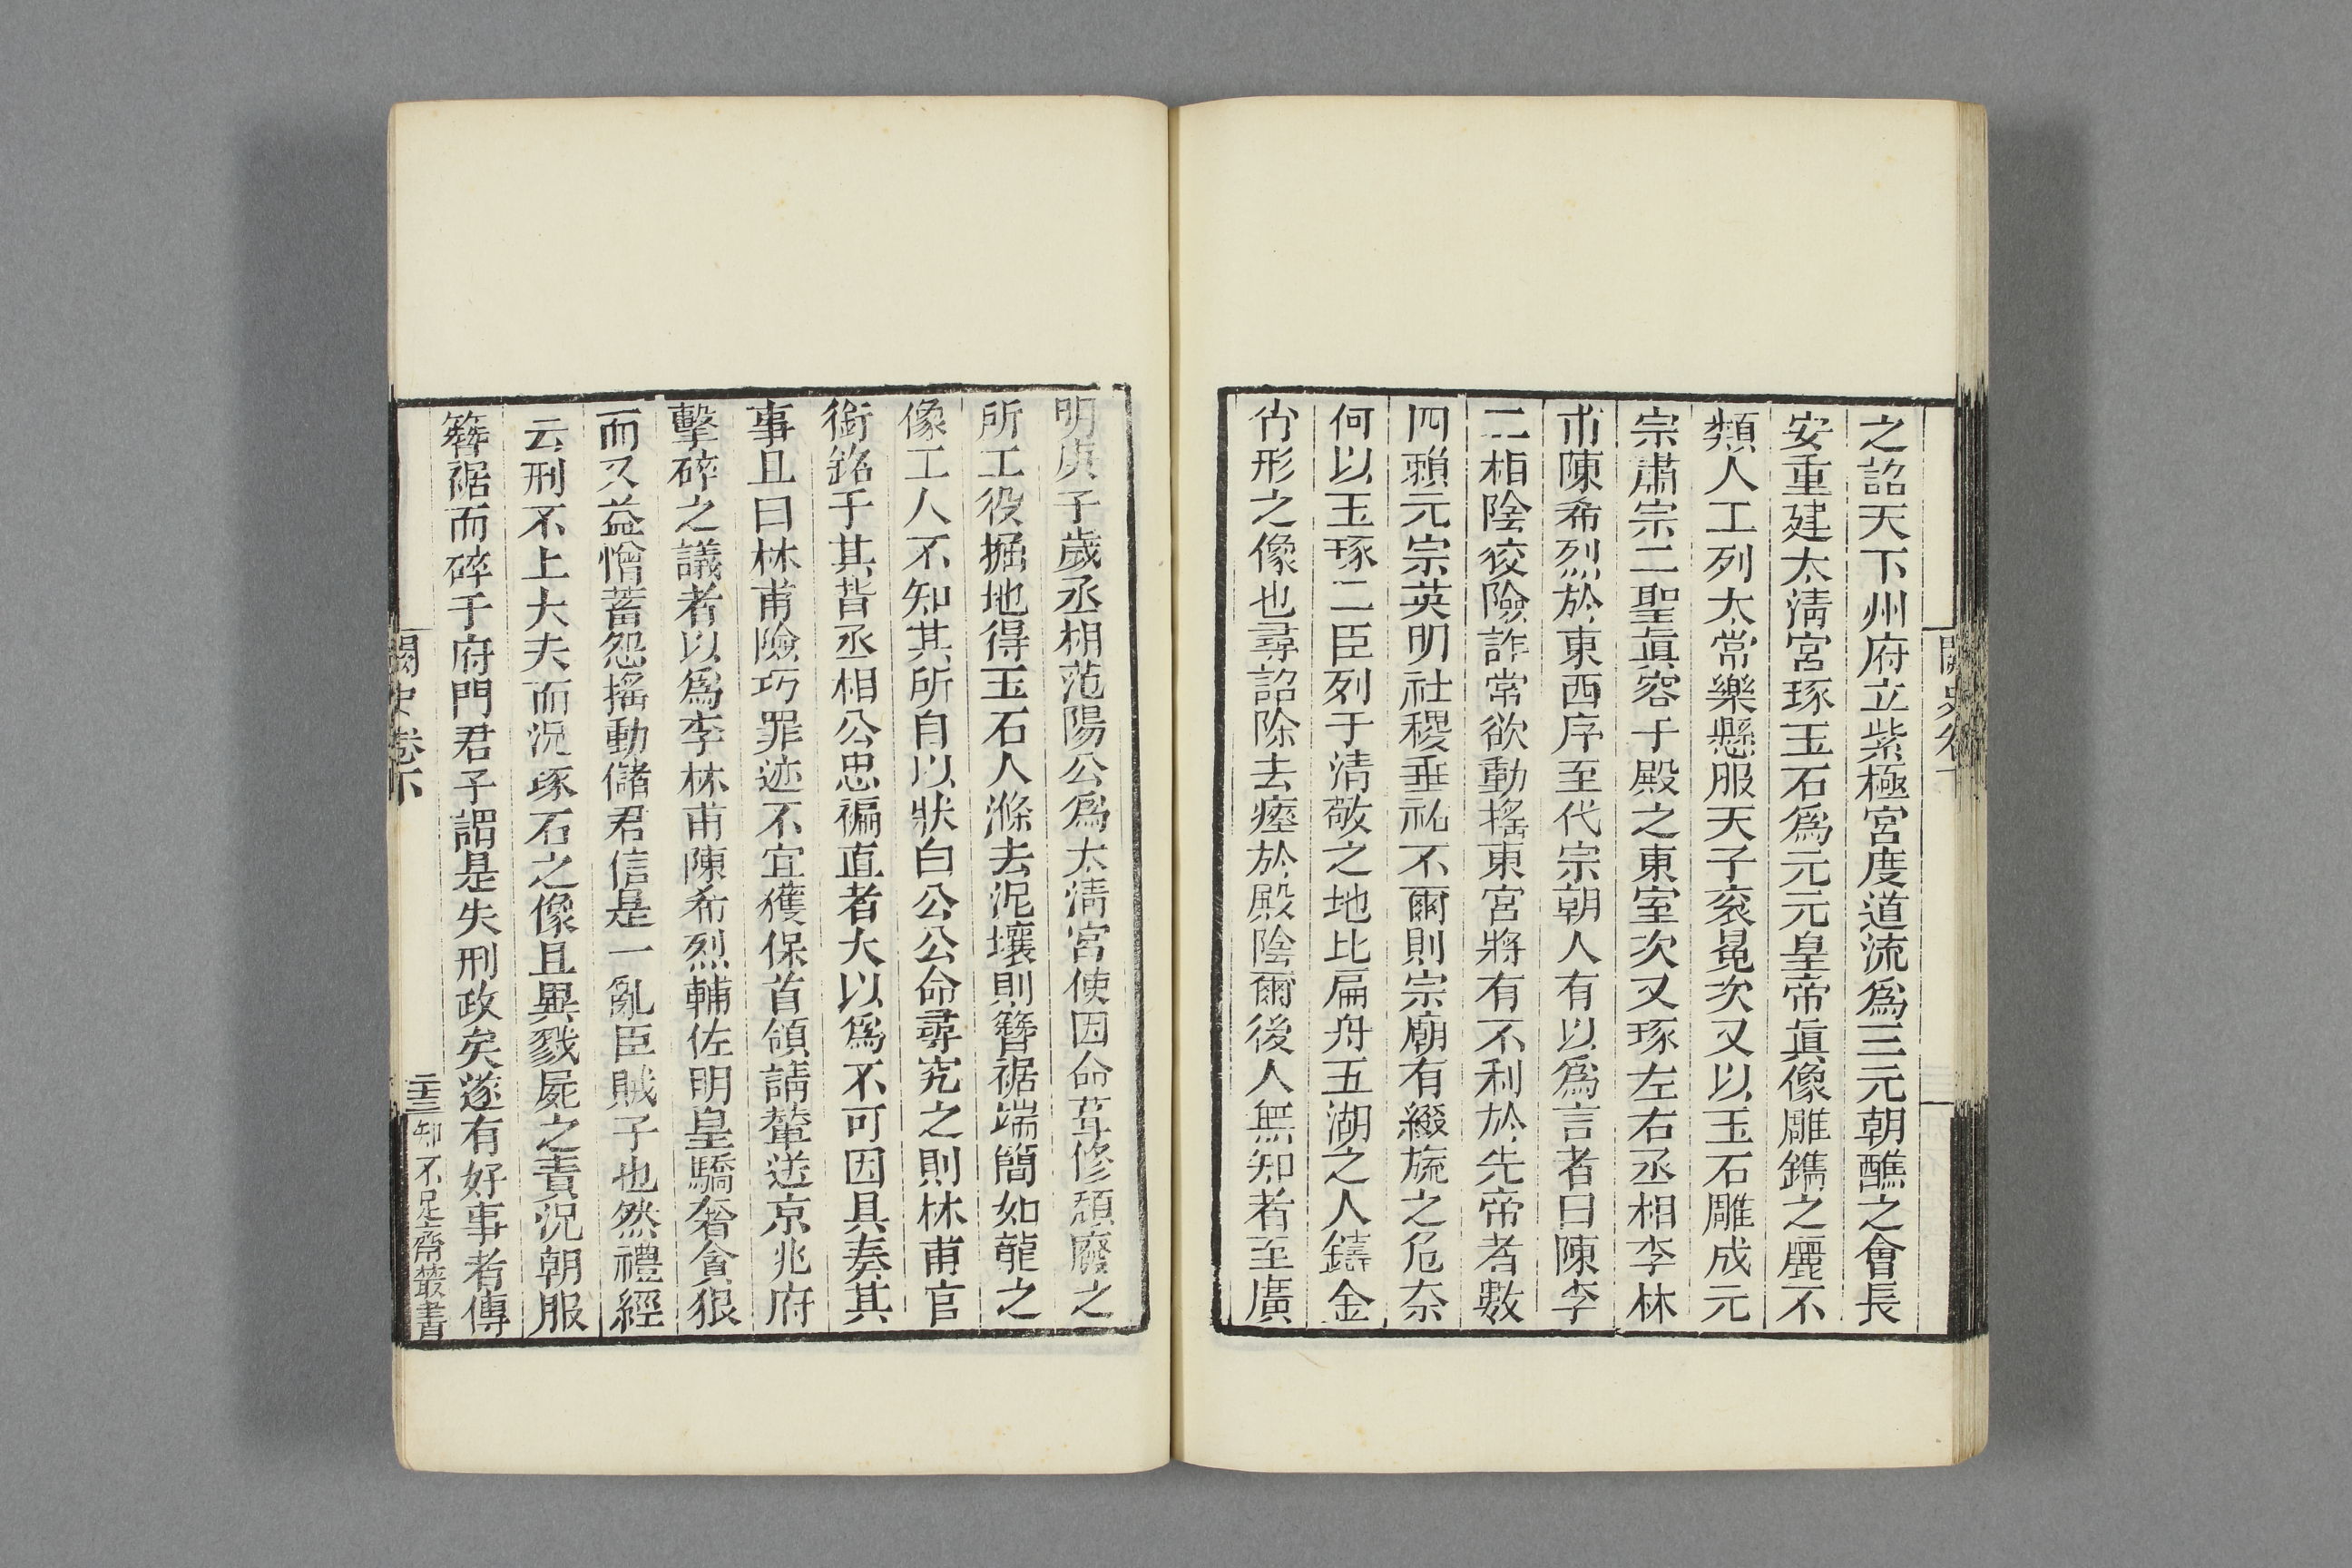 之詔天下州府立紫極宮度道流爲三元朝醮之會長
安重建太淸宮琢玉石爲元元皇帝眞像雕鐫之麗不
類人工列太常樂懸服天子衮冕次又以玉石雕成元
宗肅宗二聖眞容于殿之東室次又琢左右丞相李林
甫陳希烈於東西序至代宗朝人有以爲言者曰陳李
二相陰狡險詐常欲動搖東宮將有不利於先帝者數
四賴元宗英明社稷垂祐不爾則宗廟有綴旒之危奈
何以玉琢二臣列于清敬之地比扁舟五湖之人鑄金
肖形之像也尋詔除去瘞於殿陰爾後人無知者至廣
明庚子歲丞相范陽公爲太淸宮使因命葺修頹廢之
所工役掘地得玉石人滌去泥壤則簪裾端簡如龍之
像工人不知其所自以狀白公公命尋究之則林甫官
銜銘于其背丞相公忠褊直者大以爲不可因具奏其
事且曰林甫險巧罪迹不宜獲保首領請輦送京兆府
擊碎之議者以爲李林甫陳希烈輔佐明皇驕奢貪狠
而又益憎蓄怨搖動儲君信是一亂臣賊子也然禮經
云刑不上大夫而況琢石之像且異戮屍之責況朝服
簪裾而碎于府門君子謂是失刑政矣遂有好事者傳
闕史卷下
二十三
知不足齋叢書